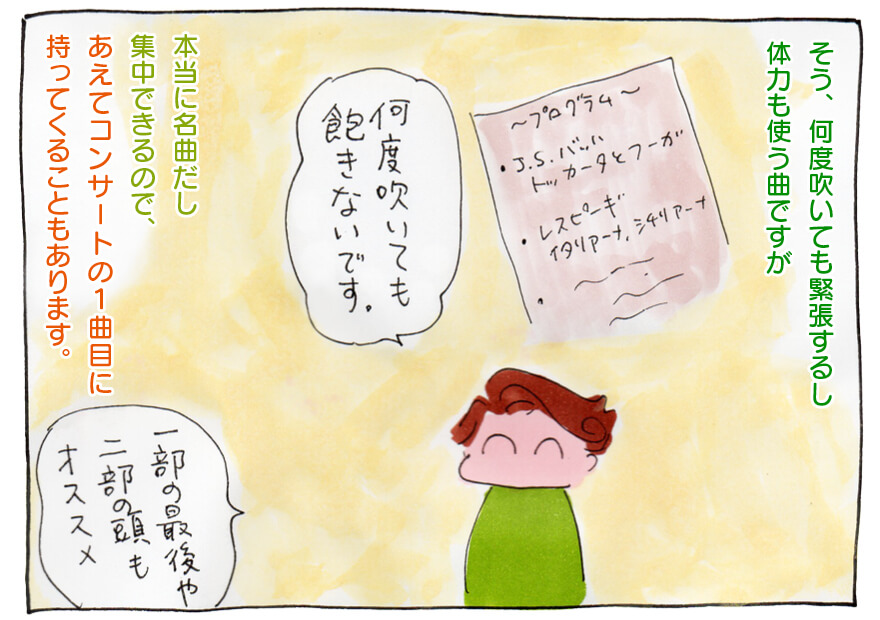 そう、何度吹いても緊張するし
体力も使う曲ですが
～プログラム～
・J.S.バッハ
トッカータとフーガ
・レスピーギ
イタリアーナ、シチリアーナ
・
何度吹いても
飽きないです。
本当に名曲だし
集中できるので、
あえてコンサートの1曲目に
持ってくることもあります。
一部の最後や
二部の頭も
オススメ